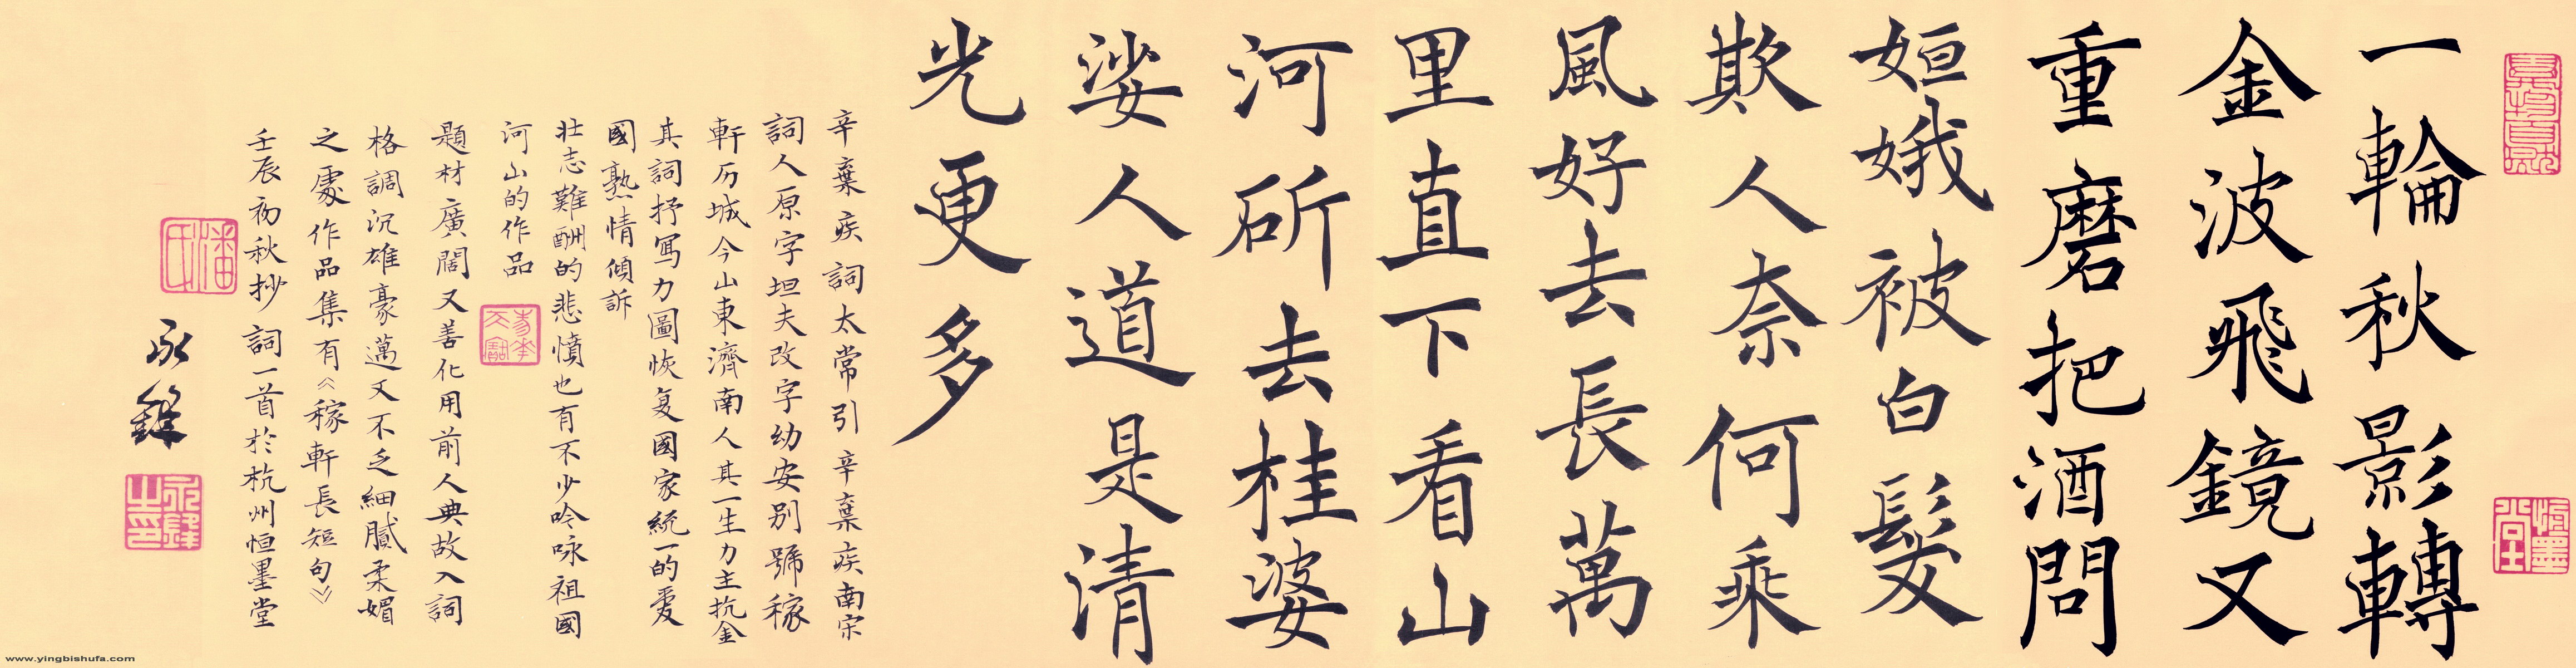 一輪秋影轉
金波飛鏡又
重磨把酒問
姮娥被白髮
欺人奈何乘
風好去長萬
里直下看山
河斫去桂婆
娑人道是清
光更多
辛棄疾詞太常引辛棄疾南宋
詞人原字坦夫改字幼安别號稼
軒历城今山東濟南人其一生力主抗金
其詞抒寫力圖恢复國家統一的爱
國熟情傾訴
壮志難酬的悲憤也有不少吟咏祖國
河山的作品
題材廣闊又善化用前人典故入詞
格調沉雄豪邁又不乏細膩柔媚
之處作品集有《稼軒長短句》
壬辰初秋抄詞一首於杭州恒墨堂
永鋒
潘氏
恒墨堂
www.yingbishufa.com